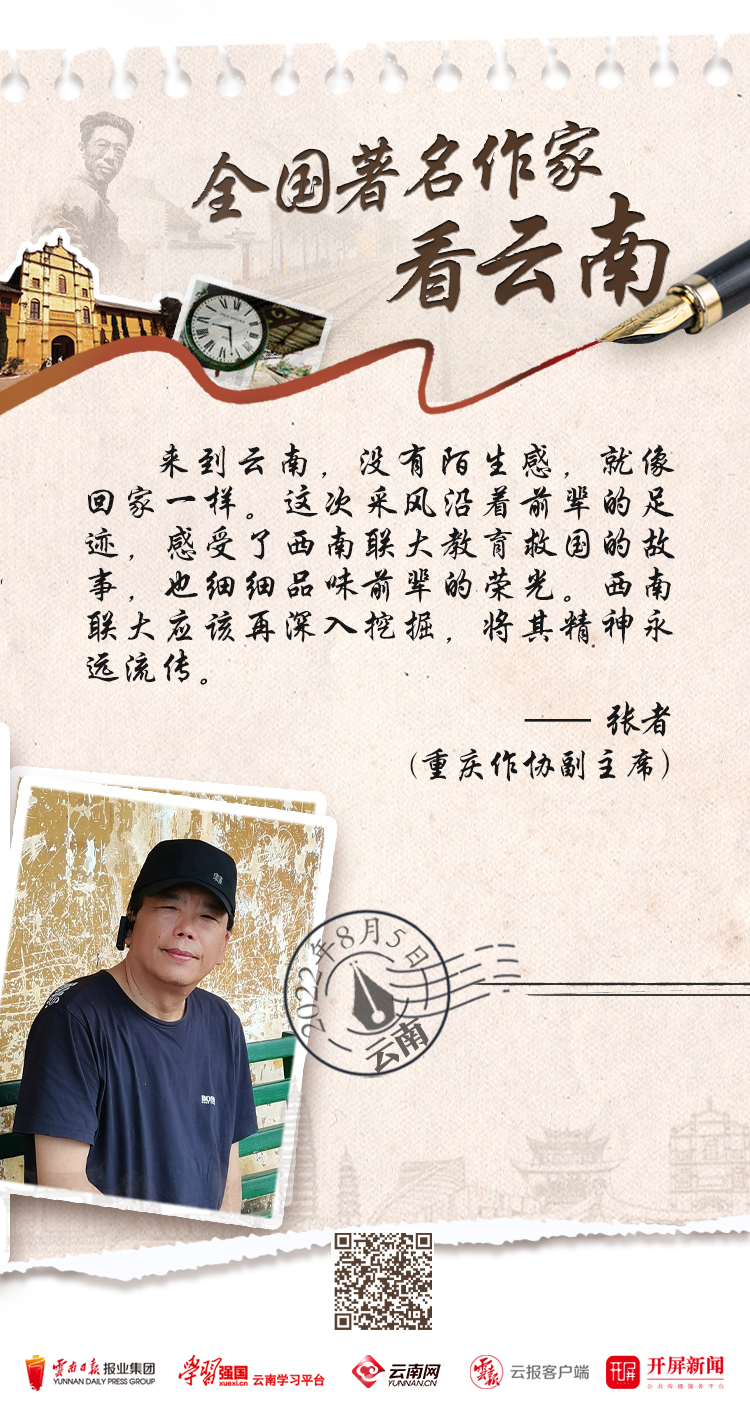 全国著名作家
看云南
来到云南，没有陌生感，就像
回家一样。这次采风沿着前辈的足
迹，感受了西南联大教育救国的故
事，也细细品味前辈的荣光。西南
联大应该再深入挖掘，将其精神永
远流传。
—— 张者
（重庆作协副主席）
BOSS
2022年8月5日
云南
雲南日报 报业集团
YUNNAN DAILY PRESS GROUP
学习强国
xuexi.cn
云南学习平台
云南网
YUNNAN.CN
云报客户端
开屏
开屏新闻
公共传播服务平台